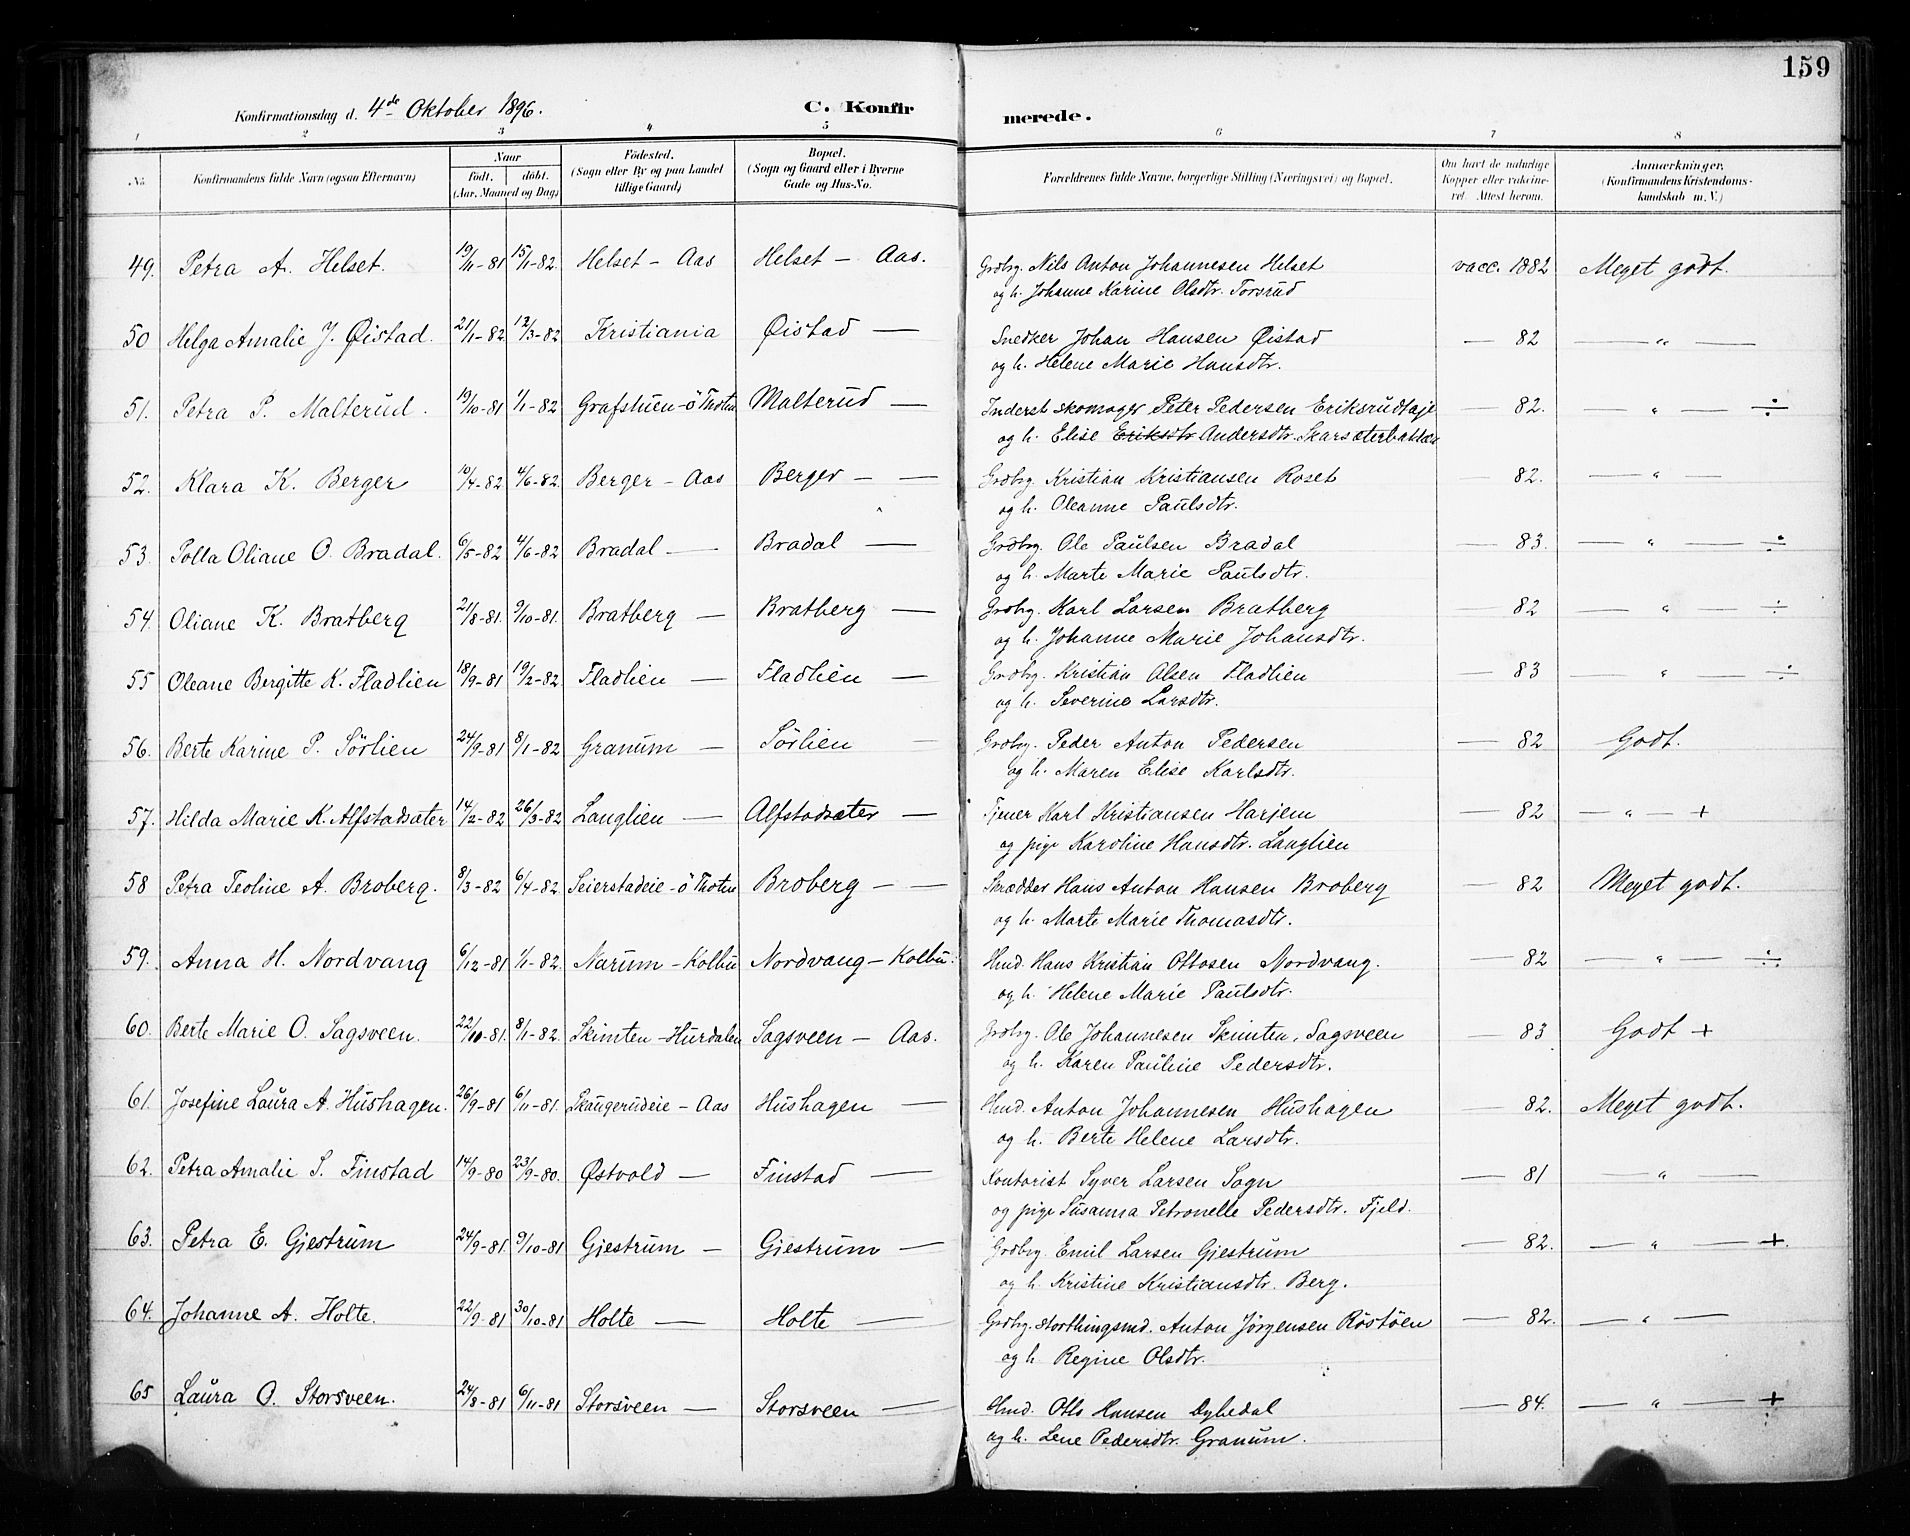 159
Konfirmationsdag d. 4de Oktober 1896. C. Konfirmerede.
1 2 3 4 5 6 7 8
No. Konfirmandens fulde Navn (ogsaa Efternavn) Naar født. døbt. (Aar, Maaned og Dag) Fødested. (Sogn eller By og paa Landet tillige Gaard) Bopæl. (Sogn og Gaard eller i Byerne Gade og Hus-No. Forældrenes fulde Navne, borgerlige Stilling (Næringsvei) og Bopæl. Om havt de naturlige Kopper eller vaccineret. Attest herom. Anmærkninger, (Konfirmandens Kristendomskundskab m. V.)
49. Petra A. Helset. 19/11-81 15/1-82. Helset - Aas Helset - Aas. Grdbrg. Nils Anton Johannesen Helset vacc. 1882 Meget godt.
og h. Johanne Karine Olsdtr. Torsrud
50 Helga Amalie J. Øistad. 21/1-82 12/3-82 Kristiania Øistad — Snedker Johan Hansen Øistad — 82 — " —
og h. Helene Marie Hansdtr.
51. Petra P. Malterud. 19/10-81 1/1-82 Grafshuen - ö Thoten Malterud — Inderst skomager Peter Pedersen Eriksrudeje — 82. — " — ÷
og h. Elise Eriksdtr Andersdtr. Skarsæterbakken
52. Klara K. Berger 10/4-82 4/6-82. Berger - Aas Berger - — Grdbrg. Kristian Kristiansen Roset — 82. — " —
og h. Oleanne Paulsdtr.
53. Polla Oliane O. Bradal. 6/5-82 4/6-82 Bradal — Bradal — Grdbrg. Ole Paulsen Bradal — 83. — " — ÷
og h. Marte Marie Paulsdtr.
54. Oliane K. Bratberg 21/8-81. 9/10-81. Bratberg — Bratberg — Grdbrg. Karl Larsen Bratberg — 82 — " — ÷
og h. Johanne Marie Johansdtr.
55 Oleane Bergitte K. Fladlien 18/9-81 19/2-82. Fladlien — Fladlien — Grdbrg. Kristian Olsen Fladlien — 83 — " — ÷
og h. Severine Larsdtr.
56. Berte Karine P. Sörlien 24/9-81 8/1-82 Granum — Sörlien — Grdbrg. Peder Anton Pedersen — 82 Godt.
og h. Maren Elise Karlsdtr.
57. Hilda Marie K. Alfstadsæter 14/2-82 26/3-82 Langlien — Alfstadsæter — Tjener Karl Kristiansen Harjem — 82 — " — +
og pige Karoline Hansdtr. Langlien
58 Petra Teoline A. Broberg. 8/3-82 6/4-82 Seierstadeie - ö Thoten Broberg - — Skrædder Hans Anton Hansen Broberg — 82 Meget godt.
og h. Marte Marie Thomasdtr.
59. Anna H. Nordvang 6/12-81 1/1-82. Narum - Kolbu Nordvang - Kolbu. Hmd. Hans Kristian Ottosen Nordvang. — 82 — " — ÷
og h. Helene Marie Paulsdtr.
60. Berte Marie O. Sagsveen. 22/10-81. 8/1-82. Skimten - Hurdalen Sagsveen - Aas. Grdbrg. Ole Johannesen Skimten, Sagsveen — 83 Godt +
og h. Karen Pauline Pedersdtr.
61. Josefine Laura A. Hushagen. 26/9-81 6/11-81. Skaugerudeie - Aas Hushagen — Hmd. Anton Johannesen Hushagen — 82. Meget godt.
og h. Berte Helene Larsdtr.
62. Petra Amalie S. Finstad 14/9-80 23/9-80. Østvold — Finstad — Kontorist Syver Larsen Sogn — 81 — " —
og pige Susanna Petronelle Pedersdtr. Fjeld.
63. Petra E. Gjestrum 24/9-81. 9/10-81 Gjestrum — Gjestrum — Grdbrg. Emil Larsen Gjestrum — 82. — " — +.
og h. Kristine Kristiansdtr. Berg.
64. Johanne A. Holte. 22/9-81 30/10-81 Holte — Holte — Grdbrg. storthingsmd. Anton Jörgensen Röstöen — 82. — " —
og h Regine Olsdtr.
65 Laura O. Storsveen. 24/8-81 6/11-81 Storsveen — Storsveen — Hmd. Otto Hansen Dyhedal — 84. — " — +
og h. Lene Pedersdtr. Granum.